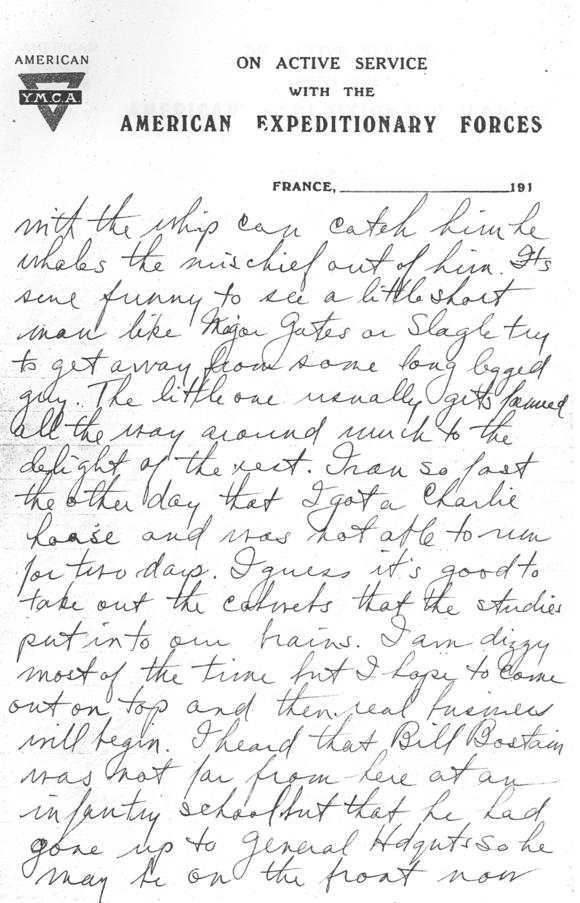 AMERICAN
Y.M.C.A.
ON ACTIVE SERVICE
WITH THE
AMERICAN EXPEDITIONARY FORCES
FRANCE, 191
with the whip can catch him he
whales the mischief out of him. Its
sure funny to see a little short
man like Major Gates or Slagle try
to get away from some long legged
guy. The little one usually gets fanned
all the way around much to the
delight of the rest. I ran so fast
the other day that I got a Charlie
hoase and was not able to run
for two days. I guess it's good to
take out the cobwebs that the studies
put into our brains. I am dizzy
most of the time but I hope to come
out on top and then real business
will begin. I heard that Bill Bostain
was not far from here at an
infantry school but that he had
gone up to General Hdquts so he
may be on the front now